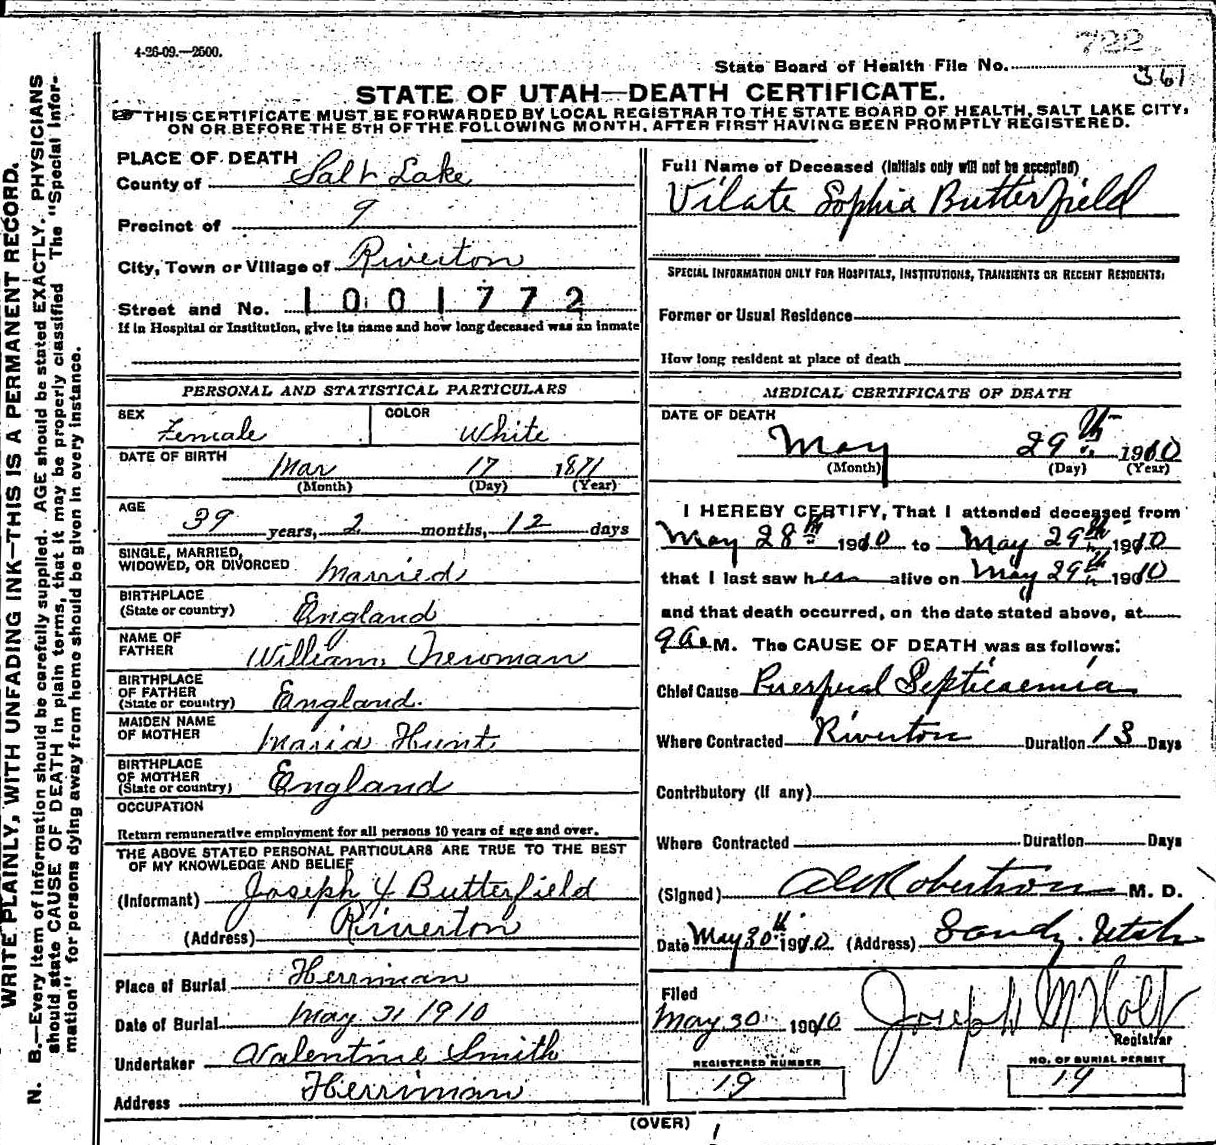 4-26-09.—2500.
722
State Board of Health File No.
361
STATE OF UTAH—DEATH CERTIFICATE.
☞THIS CERTIFICATE MUST BE FORWARDED BY LOCAL REGISTRAR TO THE STATE BOARD OF HEALTH, SALT LAKE CITY,
ON OR BEFORE THE 5TH OF THE FOLLOWING MONTH, AFTER FIRST HAVING BEEN PROMPTLY REGISTERED.
WRITE PLAINLY, WITH UNFADING INK—THIS IS A PERMANENT RECORD.
N. B.—Every item of information should be carefully supplied. AGE should be stated EXACTLY. PHYSICIANS
should state CAUSE OF DEATH in plain terms, that it may be properly classified. The "Special Infor-
mation" for persons dying away from home should be given in every instance.
PLACE OF DEATH
County of Salt Lake
Precinct of 9
City, Town or Village of Riverton
Street and No. 1001772
If in Hospital or Institution, give its name and how long deceased was an inmate
PERSONAL AND STATISTICAL PARTICULARS
SEX Female COLOR White
DATE OF BIRTH Mar 17 1871
(Month) (Day) (Year)
AGE 39 years, 2 months, 12 days
SINGLE, MARRIED,
WIDOWED, OR DIVORCED Married
BIRTHPLACE
(State or country) England
NAME OF
FATHER William Newman
BIRTHPLACE
OF FATHER
(State or country) England.
MAIDEN NAME
OF MOTHER Maria Hunt
BIRTHPLACE
OF MOTHER
(State or country) England
OCCUPATION
Return remunerative employment for all persons 10 years of age and over.
THE ABOVE STATED PERSONAL PARTICULARS ARE TRUE TO THE BEST
OF MY KNOWLEDGE AND BELIEF
(Informant) Joseph Y Butterfield
(Address) Riverton
Place of Burial Herriman
Date of Burial May 31 1910
Undertaker Valentine Smith
Address Herriman
Full Name of Deceased (Initials only will not be accepted)
Vilate Sophia Butterfield
SPECIAL INFORMATION ONLY FOR HOSPITALS, INSTITUTIONS, TRANSIENTS OR RECENT RESIDENTS.
Former or Usual Residence
How long resident at place of death
MEDICAL CERTIFICATE OF DEATH
DATE OF DEATH
May 29th 1910
(Month) (Day) (Year)
I HEREBY CERTIFY, That I attended deceased from
May 28th 1910 to May 29th 1910
that I last saw her alive on May 29th 1910
and that death occurred, on the date stated above, at
9 a. M. The CAUSE OF DEATH was as follows:
Chief Cause Puerpural Septicaemia
Where Contracted Riverton Duration 13 Days
Contributory (if any)
Where Contracted Duration Days
(Signed) Robertson M. D.
Date May 30th 1910 (Address) Sandy. Utah
Filed
May 30 1910 Joseph M Holt
Registrar
REGISTERED NUMBER
19
NO. OF BURIAL PERMIT
19
(OVER)